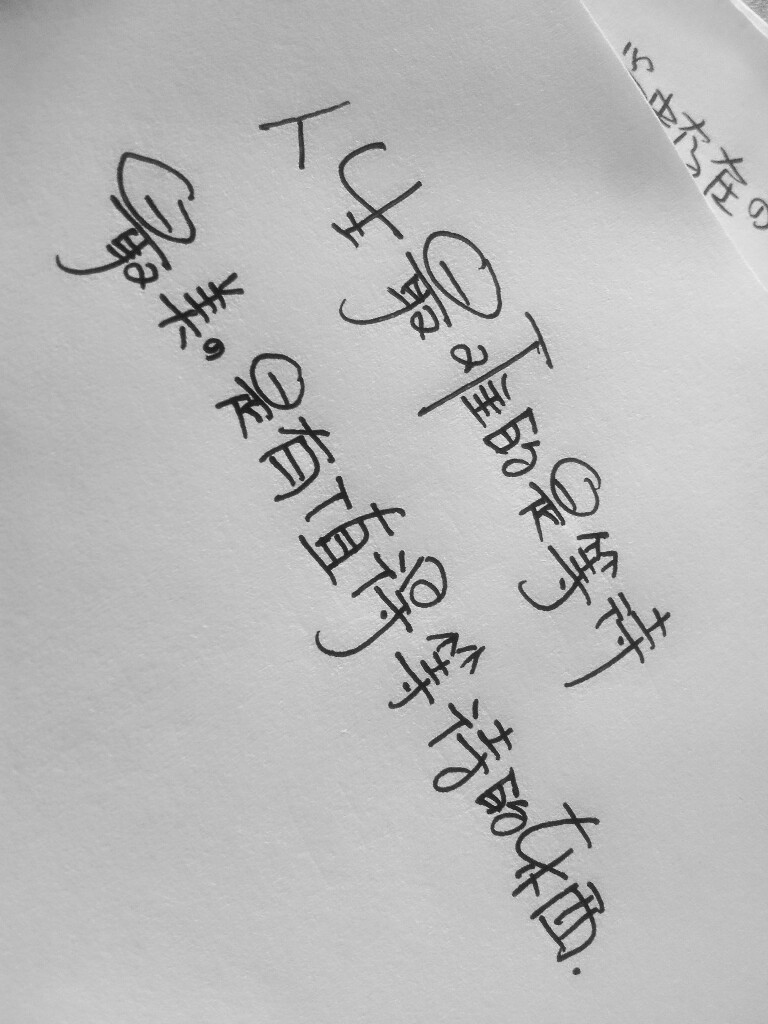 人生最难的是等待
最美的是有值得等待的东西.
存在の